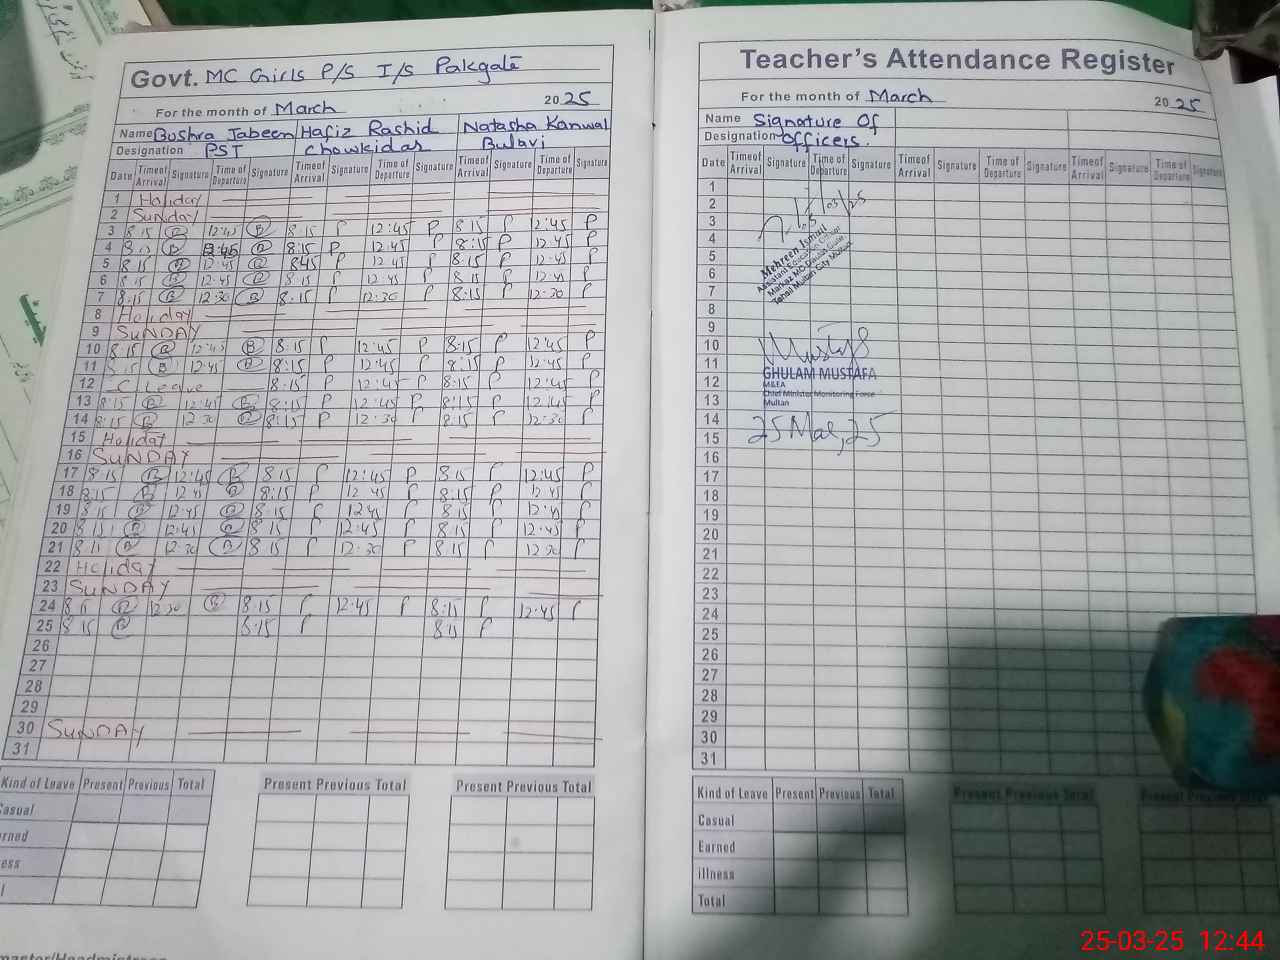 Govt. MC Girls P/S I/S Pakgate
For the month of March 2025
Name Bushra Jabeen Hafiz Rashid Natasha Kanwal
Designation PST Chowkidar Bulavi
Date Time of Arrival Signature Time of Departure Signature Time of Arrival Signature Time of Departure Signature Time of Arrival Signature Time of Departure Signature
1 Holiday
2 Sunday
3 8:15 B 12:45 B 8:15 P 12:45 P 8:15 P 12:45 P
4 8:15 B 12:45 B 8:15 P 12:45 P 8:15 P 12:45 P
5 8:15 B 12:45 B 8:45 P 12:45 P 8:15 P 12:45 P
6 8:15 B 12:45 B 8:15 P 12:45 P 8:15 P 12:45 P
7 8:15 B 12:30 B 8:15 P 12:30 P 8:15 P 12:30 P
8 Holiday
9 SUNDAY
10 8:15 B 12:45 B 8:15 P 12:45 P 8:15 P 12:45 P
11 8:15 B 12:45 B 8:15 P 12:45 P 8:15 P 12:45 P
12 C Leave 8:15 P 12:45 P 8:15 P 12:45 P
13 8:15 B 12:45 B 8:15 P 12:45 P 8:15 P 12:45 P
14 8:15 B 12:30 B 8:15 P 12:30 P 8:15 P 12:30 P
15 Holiday
16 SUNDAY
17 8:15 B 12:45 B 8:15 P 12:45 P 8:15 P 12:45 P
18 8:15 B 12:45 B 8:15 P 12:45 P 8:15 P 12:45 P
19 8:15 B 12:45 B 8:15 P 12:45 P 8:15 P 12:45 P
20 8:15 B 12:45 B 8:15 P 12:45 P 8:15 P 12:45 P
21 8:15 B 12:30 B 8:15 P 12:30 P 8:15 P 12:30 P
22 Holiday
23 SUNDAY
24 8:15 B 12:30 B 8:15 P 12:45 P 8:15 P 12:45 P
25 8:15 B 8:15 P 8:15 P
26
27
28
29
30 SUNDAY
31
Kind of Leave Present Previous Total Present Previous Total Present Previous Total
Casual
Teacher's Attendance Register
For the month of March 2025
Name Signature Of
Designation Officers.
Date Time of Arrival Signature Time of Departure Signature Time of Arrival Signature Time of Departure Signature Time of Arrival Signature Time of Departure Signature
1
2
3
4
5
6
7
8
9
10
11
12
13
14
15
16
17
18
19
20
21
22
23
24
25
26
27
28
29
30
31
Mehreen Ismail
Assistant Education Officer
Tehsil Multan City Multan
GHULAM MUSTAFA
M&EA
Chief Minister Monitoring Force
Multan
25 Mar, 25
Kind of Leave Present Previous Total Present Previous Total Present Previous Total
Casual
Earned
illness
Total
25-03-25 12:44